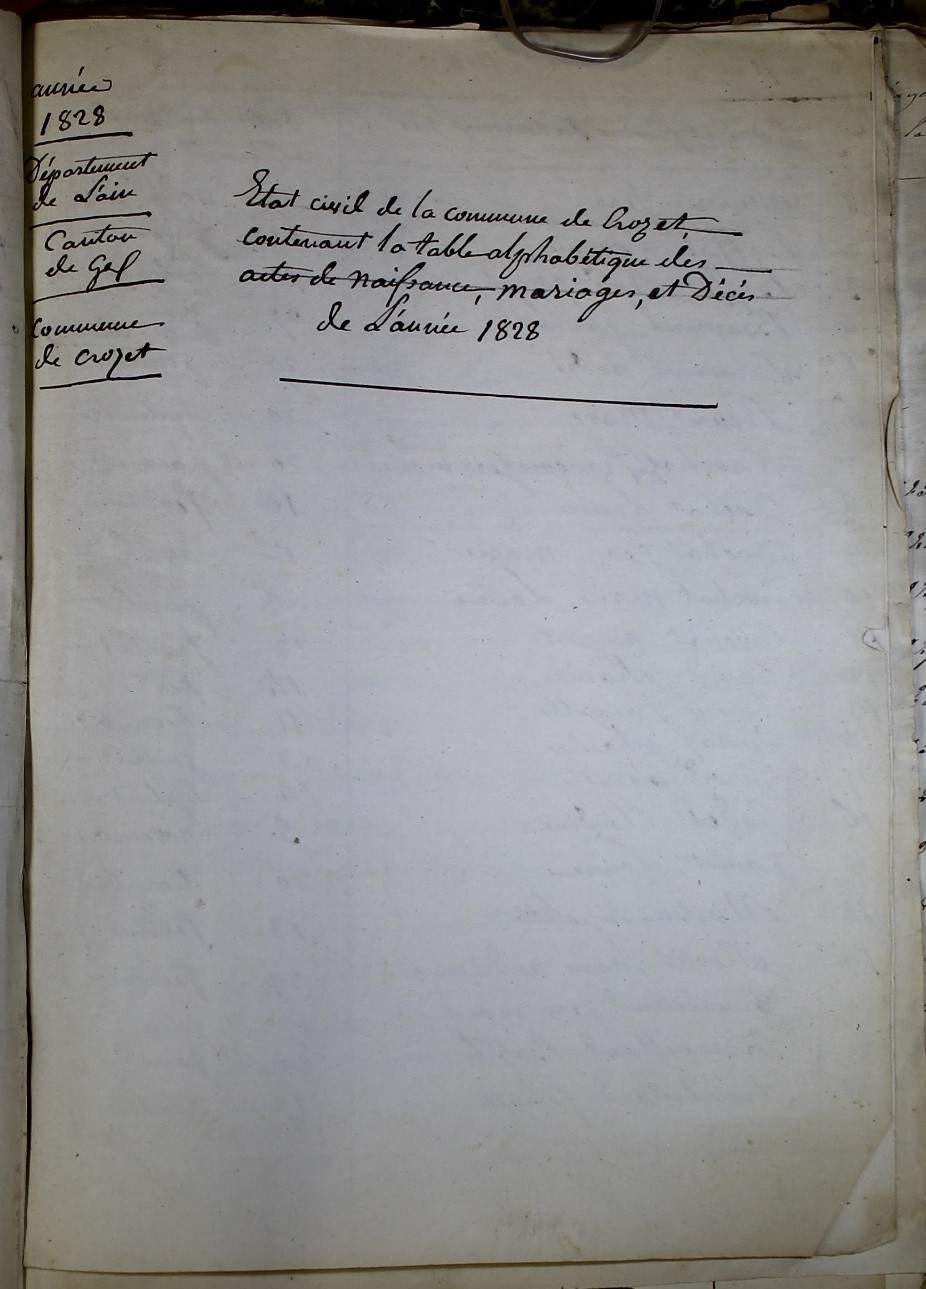 année
1828
Département
de L'ain
Canton
de Gex
Commune
de Crozet
Etat civil de la commune de Crozet,
contenant la table alphabétique des
actes de naissance, mariages, et Décès
de L'année 1828